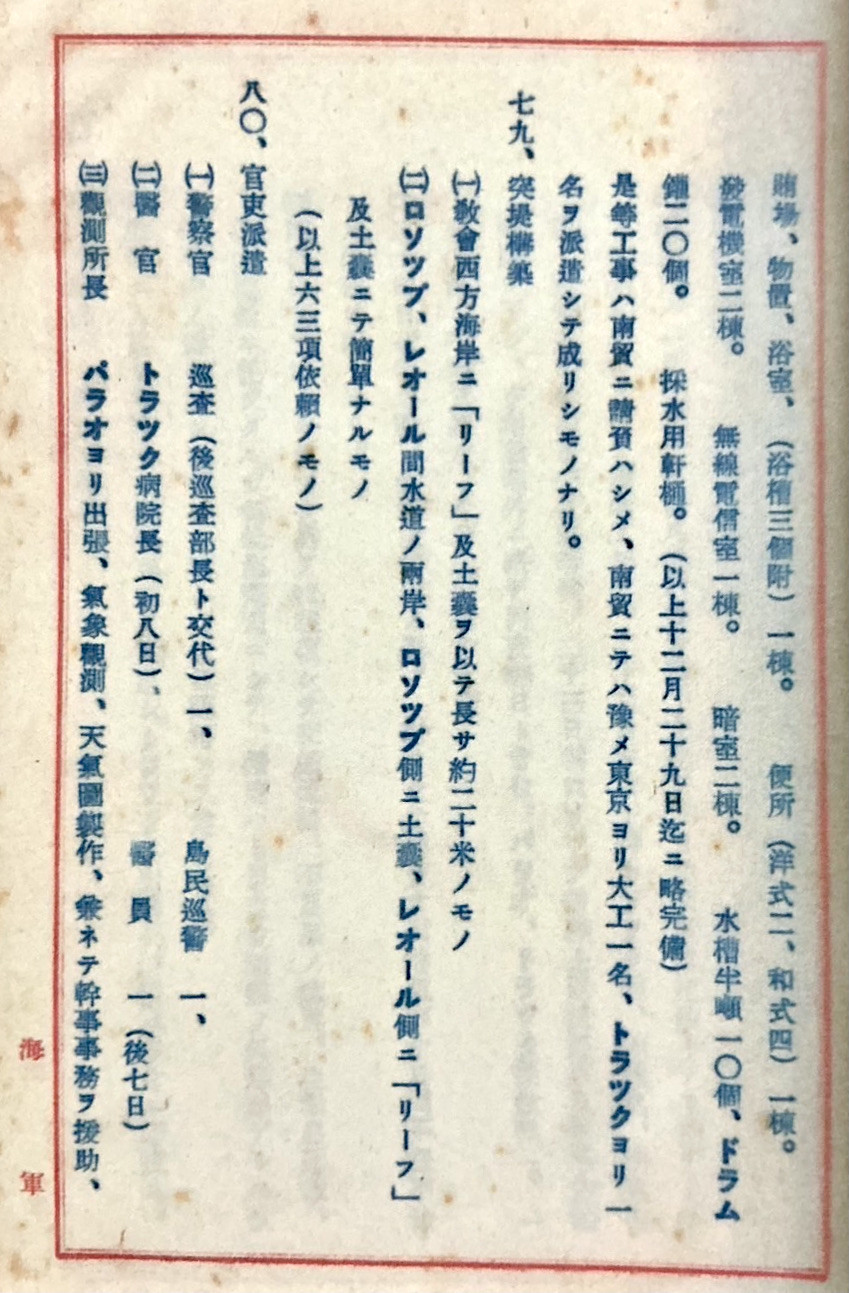 賄場、物置、浴室、(浴槽三個附)一棟。 便所(洋式二、和式四)一棟。
發電機室二棟。 無線電信室一棟。 暗室二棟。 水槽半噸一〇個、ドラム
鑵二〇個。 採水用軒樋。(以上十二月二十九日迄ニ略完備)
是等工事ハ南貿ニ請負ハシメ、南貿ニテハ豫メ東京ヨリ大工一名、トラツクヨリ一
名ヲ派遣シテ成リシモノナリ。
七九、突堤構築
㈠教會西方海岸ニ「リーフ」及土嚢ヲ以テ長サ約二十米ノモノ
㈡ロソツプ、レオール間水道ノ兩岸、ロソツプ側ニ土嚢、レオール側ニ「リーフ」
及土嚢ニテ簡單ナルモノ
(以上六三項依賴ノモノ)
八〇、官吏派遣
㈠警察官 巡査(後巡査部長ト交代)一、 島民巡警 一、
㈡醫官 トラツク病院長(初八日)、 醫員 一(後七日)
㈢觀測所長 パラオヨリ出張、氣象觀測、天氣圖製作、兼ネテ幹事事務ヲ援助、
海軍